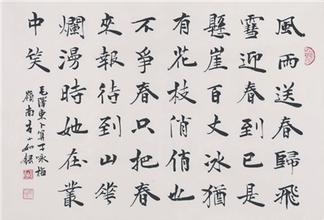 風雨送春歸飛
雪迎春到已是
懸崖百丈冰猶
有花枝俏俏也
不爭春只把春
來報待到山花
爛漫時她在叢
中笑
毛澤東卜算子詠梅
嶺南